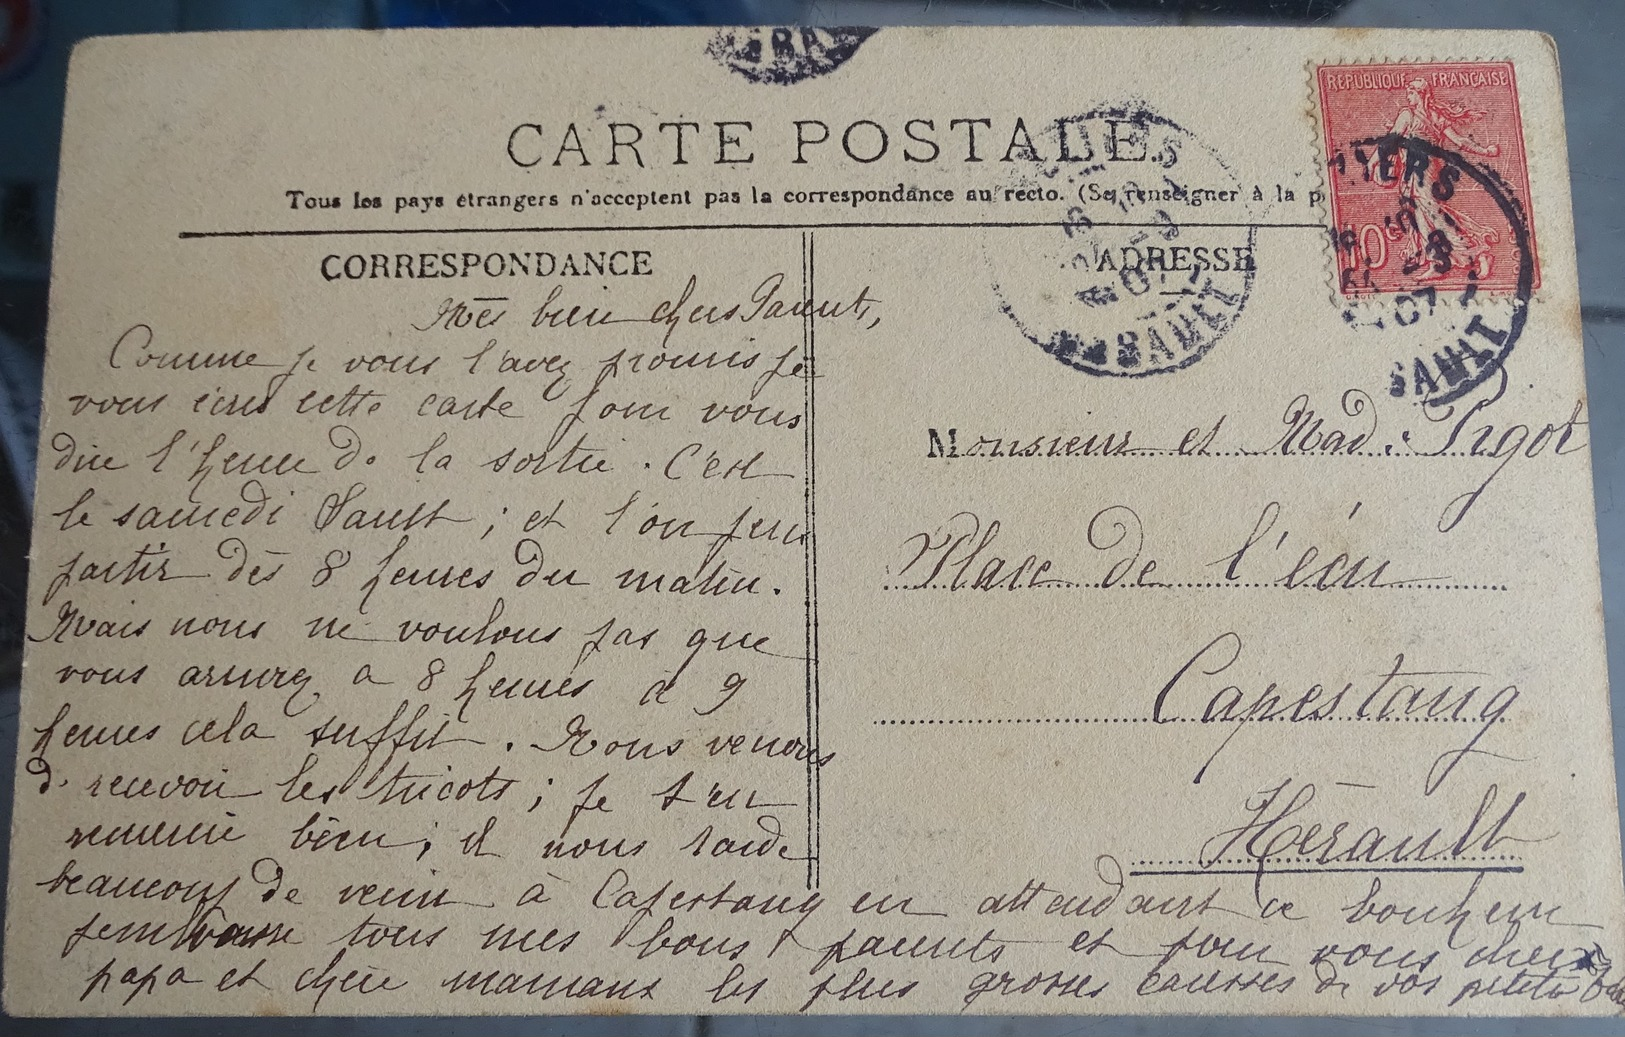 CARTE POSTALE
Tous les pays étrangers n'acceptent pas la correspondance au recto. (Se renseigner à la p
CORRESPONDANCE
ADRESSE
REPUBLIQUE FRANÇAISE
10c
Mes bien chers Parents,
Comme je vous l'avez promis je
vous écris cette carte pour vous
dire l'heure de la sortie. C'est
le samedi Sault ; et l'on peu
partir dès 8 heures du matin.
Mais nous ne voulons pas que
vous arrivez a 8 heures à 9
heures cela suffit. Nous venons
de recevoir les tricots ; je t'en
remercie bien ; il nous tarde
beaucoup de venir à Capestang en attendant ce bonheur
j'embrasse tous mes bons parents et pour vous cher
papa et chère mamans les plus grosses caresses de vos petite
Monsieur et Mad. Pigot
Place de l'écu
Capestang
Hérault